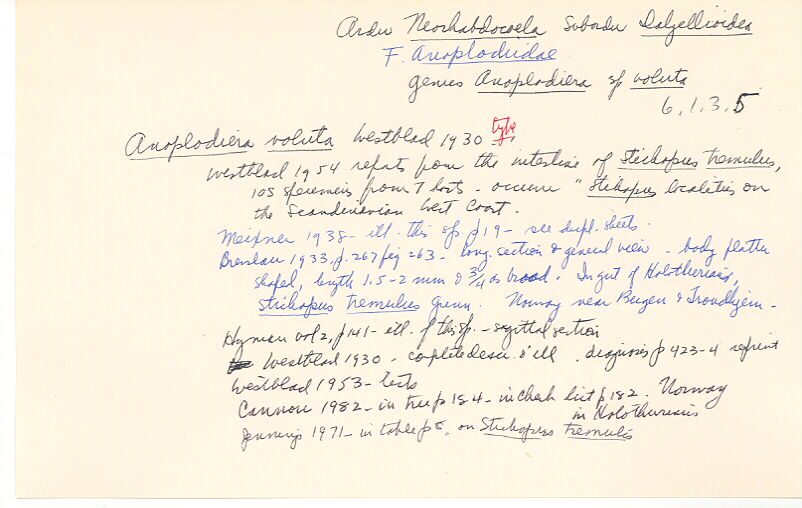 Order Neorhabdocoela Suborder Dalyellioidea
F. Anoplodiidae
genus Anoplodiera sp voluta
6.1.3.5
Anoplodiera voluta Westblad 1930 type
Westblad 1954 reports from the intestine of Stichopus tremulus,
105 specimens from 7 hosts - occurs " Stichopus localities on
the Scandinavian West Coast.
Meixner 1938 - ill. this sp p 19 - see dupl. sheets.
Bresslau 1933, p. 267 fig 263 - long. section & general view - body flatter
shaped, length 1.5-2 mm & 3/4 as broad. In gut of Holothurians,
Stichopus tremulus Gunn. Norway near Bergen & Trondhjem -
Hyman vol 2, p 141 - ill. of this sp. - sagittal section
Westblad 1930 - complete descr. & ill. diagnosis p 423-4 reprint
Westblad 1953 - tests
Cannon 1982 - in tree p 184 - in check list p 182. Norway
in Holothurians
Jennings 1971 - in table p 8. on Stichopus tremulis